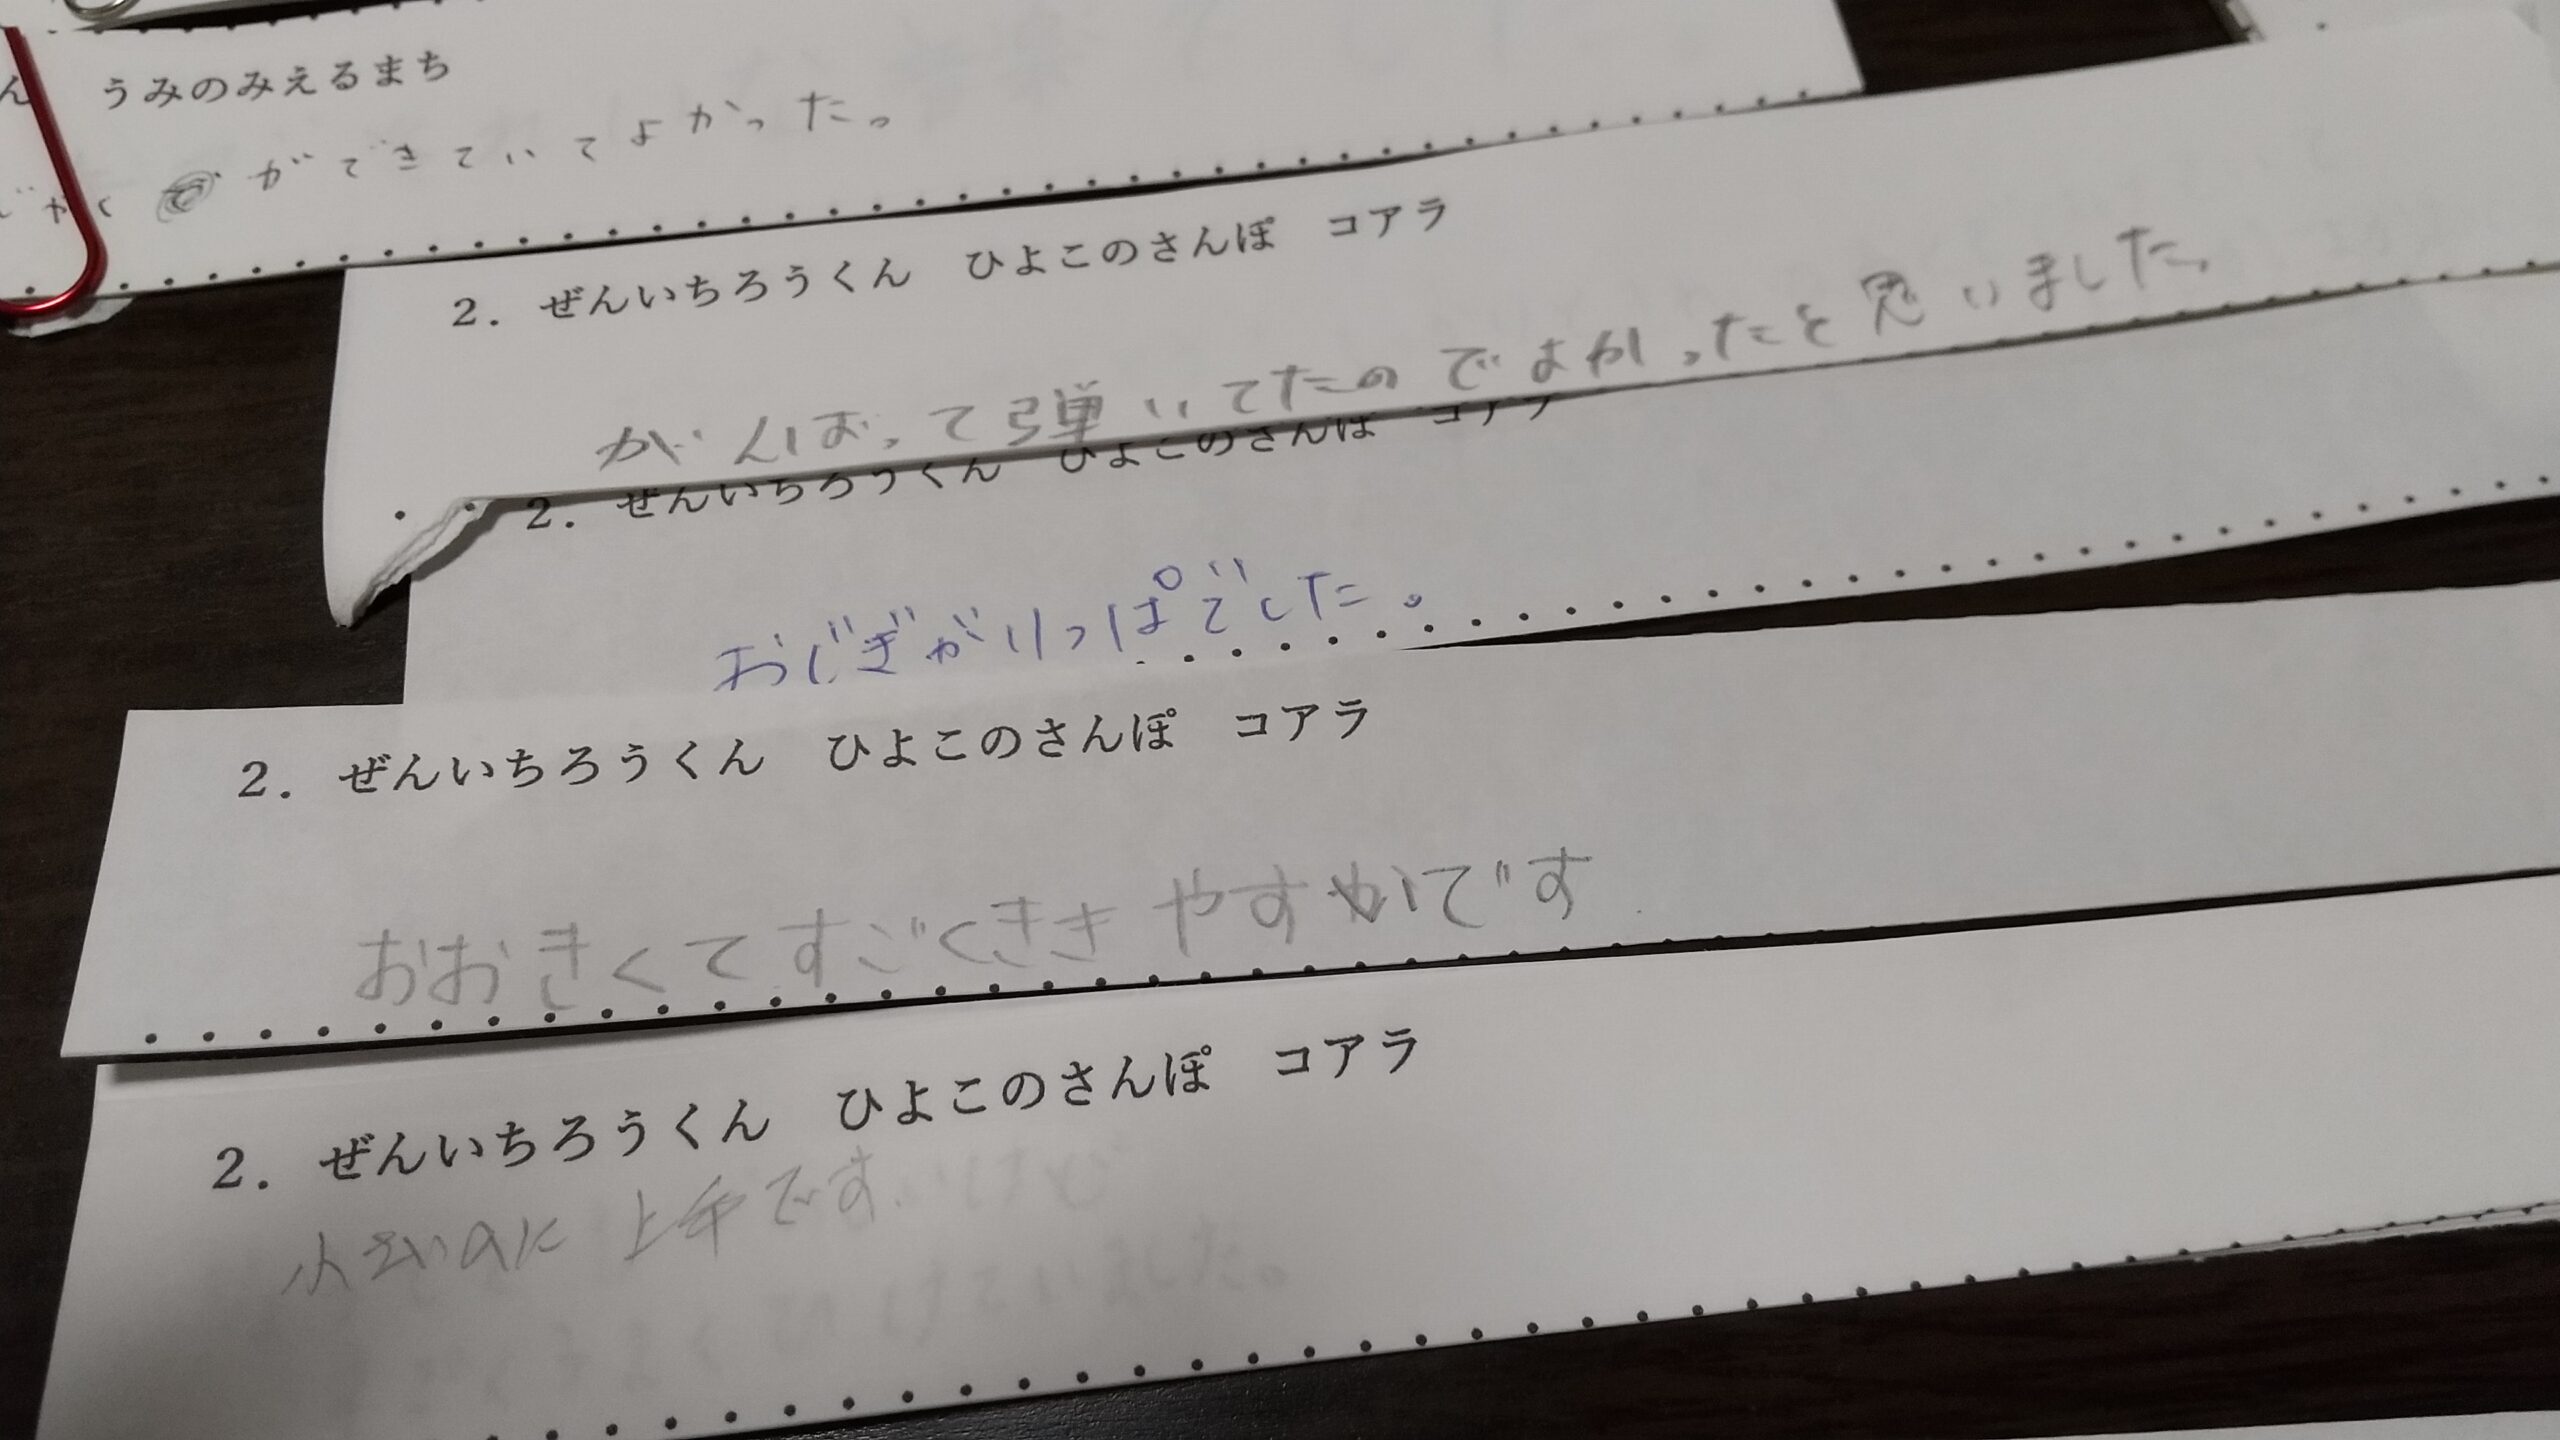 ん　うみのみえるまち
じゃく　ができていてよかった。
2. ぜんいちろうくん　ひよこのさんぽ　コアラ
がんばって弾いてたのでよかったと思いました。
2. ぜんいちろうくん　ひよこのさんぽ　コアラ
おじぎがりっぱでした。
2. ぜんいちろうくん　ひよこのさんぽ　コアラ
おおきくてすごくききやすかでです
2. ぜんいちろうくん　ひよこのさんぽ　コアラ
小さいのに上手です。